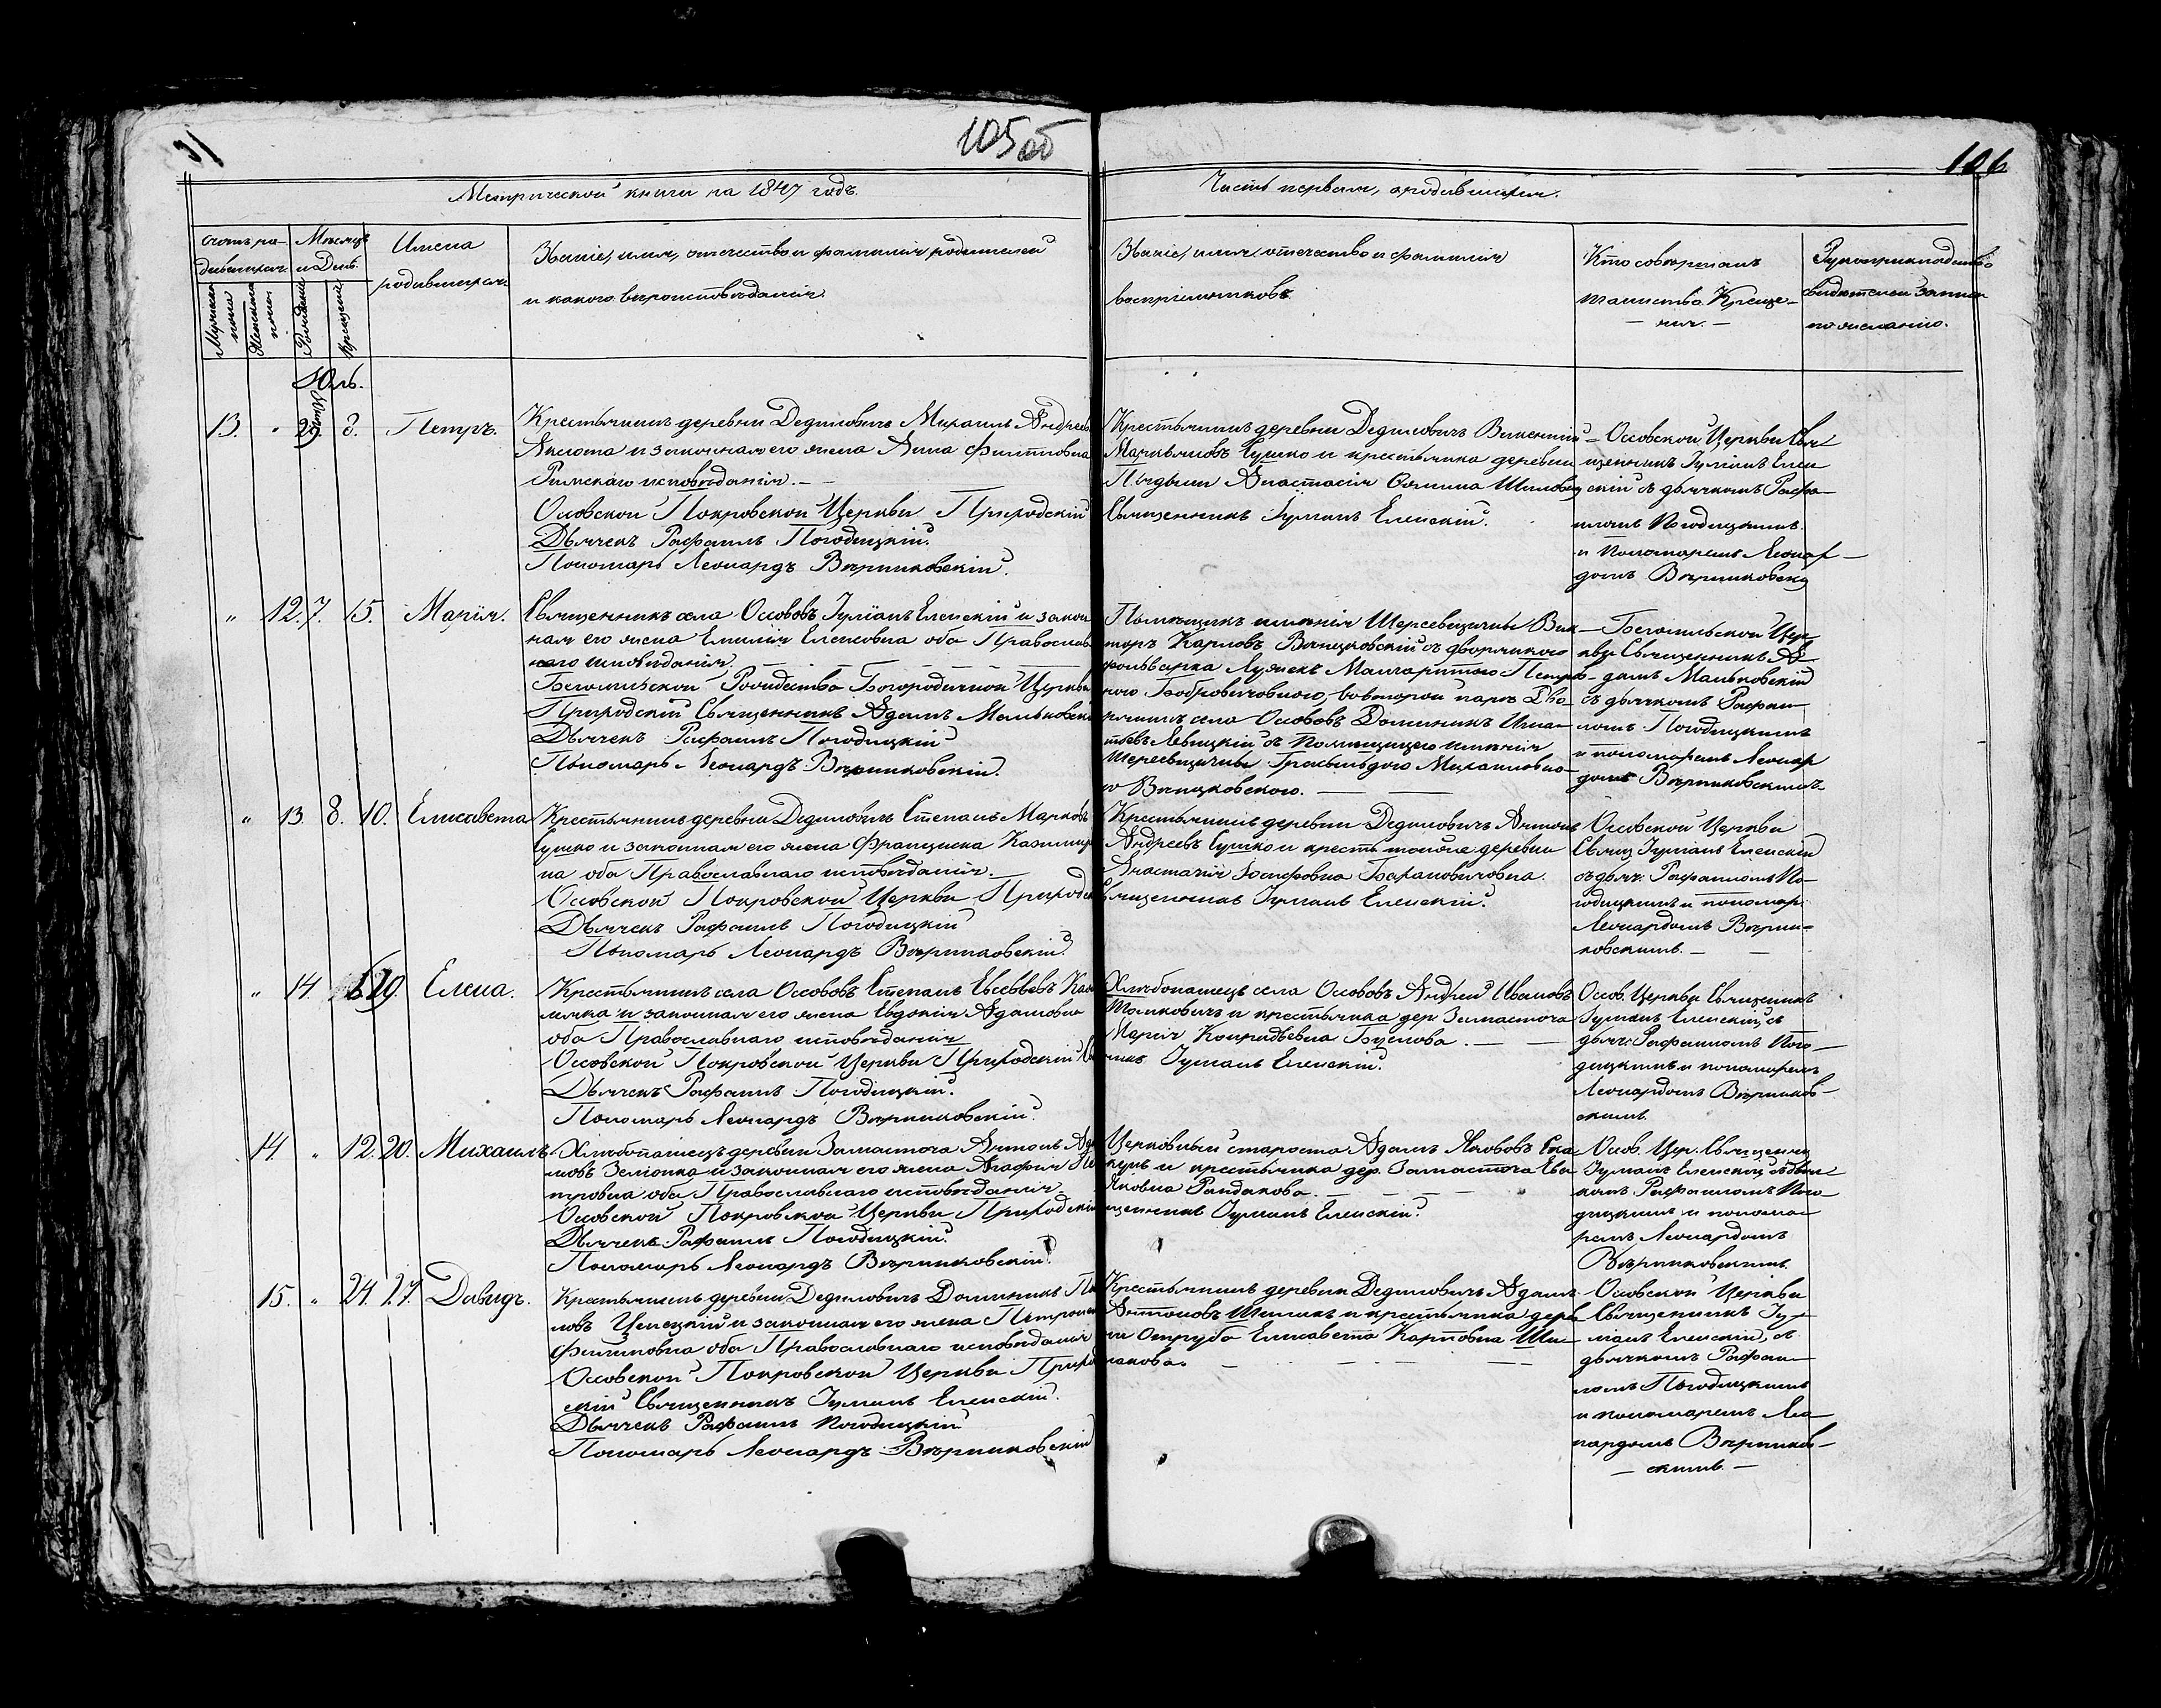 31
105 об
106
Метрической книги на 1847 годъ.
Часть первая, о родившихся.
Счетъ ро-
дившихся.
Мужеска
пола
Женска
пола
Мѣсяцъ
и День.
Рожденія
Крещенія
Имена
родившихся
Званіе, имя, отчество и фамилія родителей
и какого вѣроисповѣданія.
Званіе, имя, отчество и фамилія
воспріемниковъ
Кто совершалъ
таинство Креще-
нія.
Рукоприкладство
свидѣтелей записи
по желанію.
Юль.
13. " 29 8. Петръ.
Крестьянинъ деревни Дедиловичъ Михаилъ Андреевъ
и законная его жена Анна Филиповна
Римскаго исповѣданія.
Оссовской Покровской Церкви Приходскій
Дьячекъ Рафаилъ Погодицкій.
Пономарь Леонардъ Вѣрниковскій.
Крестьянинъ деревни Дедиловичъ Викентій
Сушко и крестьянка деревни
Анастасія
Священникъ Іуліанъ Еленскій.
Оссовской Церкви Свя
щенникъ Іуліанъ Елен
скій съ дьячкомъ Рафа
иломъ Погодицкимъ.
и Пономаремъ Леонар
домъ Вѣрниковски
" 12. 7. 15. Марія.
Священникъ села Оссововъ Іуліанъ Еленскій и закон
ная его жена Емилія Елисовна оба Православ
наго исповѣданія.
Бегомльской Рождество Богородичной Церкви
Приходскій Священникъ Адамъ Мальковскій
Дьячекъ Рафаилъ Погодицкій
Пономарь Леонардъ Вѣрниковскій.
Помѣщикъ имѣнія Шерсевщизны Вик
торъ Карловъ съ дворянкою
фольварка Маргаритою Петро
вою Бобровичовною, во второй парѣ Дво
рянинъ села Оссововъ Доминикъ Игна
тьевъ Левицкій съ Помѣщицею имѣнія
Михаиловно
ю
Бегомльской Цер
кви Священникъ А
дамъ Мальковскій
съ дьячкомъ Рафаи
ломъ Погодицкимъ
и пономаремъ Леонар
домъ Вѣрниковскимъ
" 13. 8. 10. Елисавета
Крестьянинъ деревни Дедиловичъ Степанъ Марковъ
Сушко и законная его жена Франциска Казимир
на оба Православнаго исповѣданія.
Оссовской Покровской Церкви Приходск
Дьячекъ Рафаилъ Погодицкій
Пономарь Леонардъ Вѣрниковскій.
Крестьянинъ деревни Дедиловичъ Антонъ
Андреевъ Сушко и крест. той же деревни
Анастасія Іосифовна Барановичовна.
Священникъ Іуліанъ Еленскій.
Оссовской Церкви
Свящ. Іуліанъ Еленскій
съ дьяч. Рафаиломъ По-
годицкимъ и пономар.
Леонардомъ Вѣрни-
ковскимъ.
" 14. 20. Елена.
Крестьянинъ села Оссововъ Степанъ Евсевьевъ
и законная его жена Евдокія Адамовна
оба Православнаго исповѣданія
Оссовской Покровской Церкви Приходскій Свя
Дьячекъ Рафаилъ Погодицкій.
Пономарь Леонардъ Вѣрниковскій.
Хлѣбопашецъ села Оссововъ Андрей Ивановъ
и крестьянка дер. Замасточа
Марія Кондратьевна
никъ Іуліанъ Еленскій.
Оссов. Церкви Священникъ
Іуліанъ Еленскій, съ
дьяч. Рафаиломъ Пого-
дицкимъ и пономаремъ
Леонардомъ Вѣрников-
скимъ.
14. " 12. 20. Михаилъ.
Хлѣбопашецъ деревни Замасточа Антонъ Ада
мовъ Земонка и законная его жена Агафія Пе
тровна оба Православнаго исповѣданія
Оссовской Покровской Церкви Приходскій
Дьячекъ Рафаилъ Погодицкій.
Пономарь Леонардъ Вѣрниковскій.
Церковный староста Адамъ Якововъ
и крестьянка дер. Замасточа Ева
Яковна Рандакова.
щенникъ Іуліанъ Еленскій.
Оссов. Цер. Священникъ
Іуліанъ Еленскій, съ дьяч
комъ Рафаиломъ Пого
дицкимъ и понома
ремъ Леонардомъ
Вѣрниковскимъ.
15. " 24. 27. Давидъ.
Крестьянинъ деревни Дедиловичъ Доминикъ
и законная его жена
Филиповна оба Православнаго исповѣданія
Оссовской Покровской Церкви Приход
скій Священникъ Іуліанъ Еленскій.
Дьячекъ Рафаилъ Погодицкій
Пономарь Леонардъ Вѣрниковскій
Крестьянинъ деревни Дедиловичъ Адамъ
Антоновъ и крестьянка дерев
ни Отруба Елисавета Карповна Ши-
макова.
Оссовской Церкви
Священникъ Іу-
ліанъ Еленскій, съ
дьячкомъ Рафаи
ломъ Погодицкимъ
и пономаремъ Лео
нардомъ Вѣрников-
скимъ.